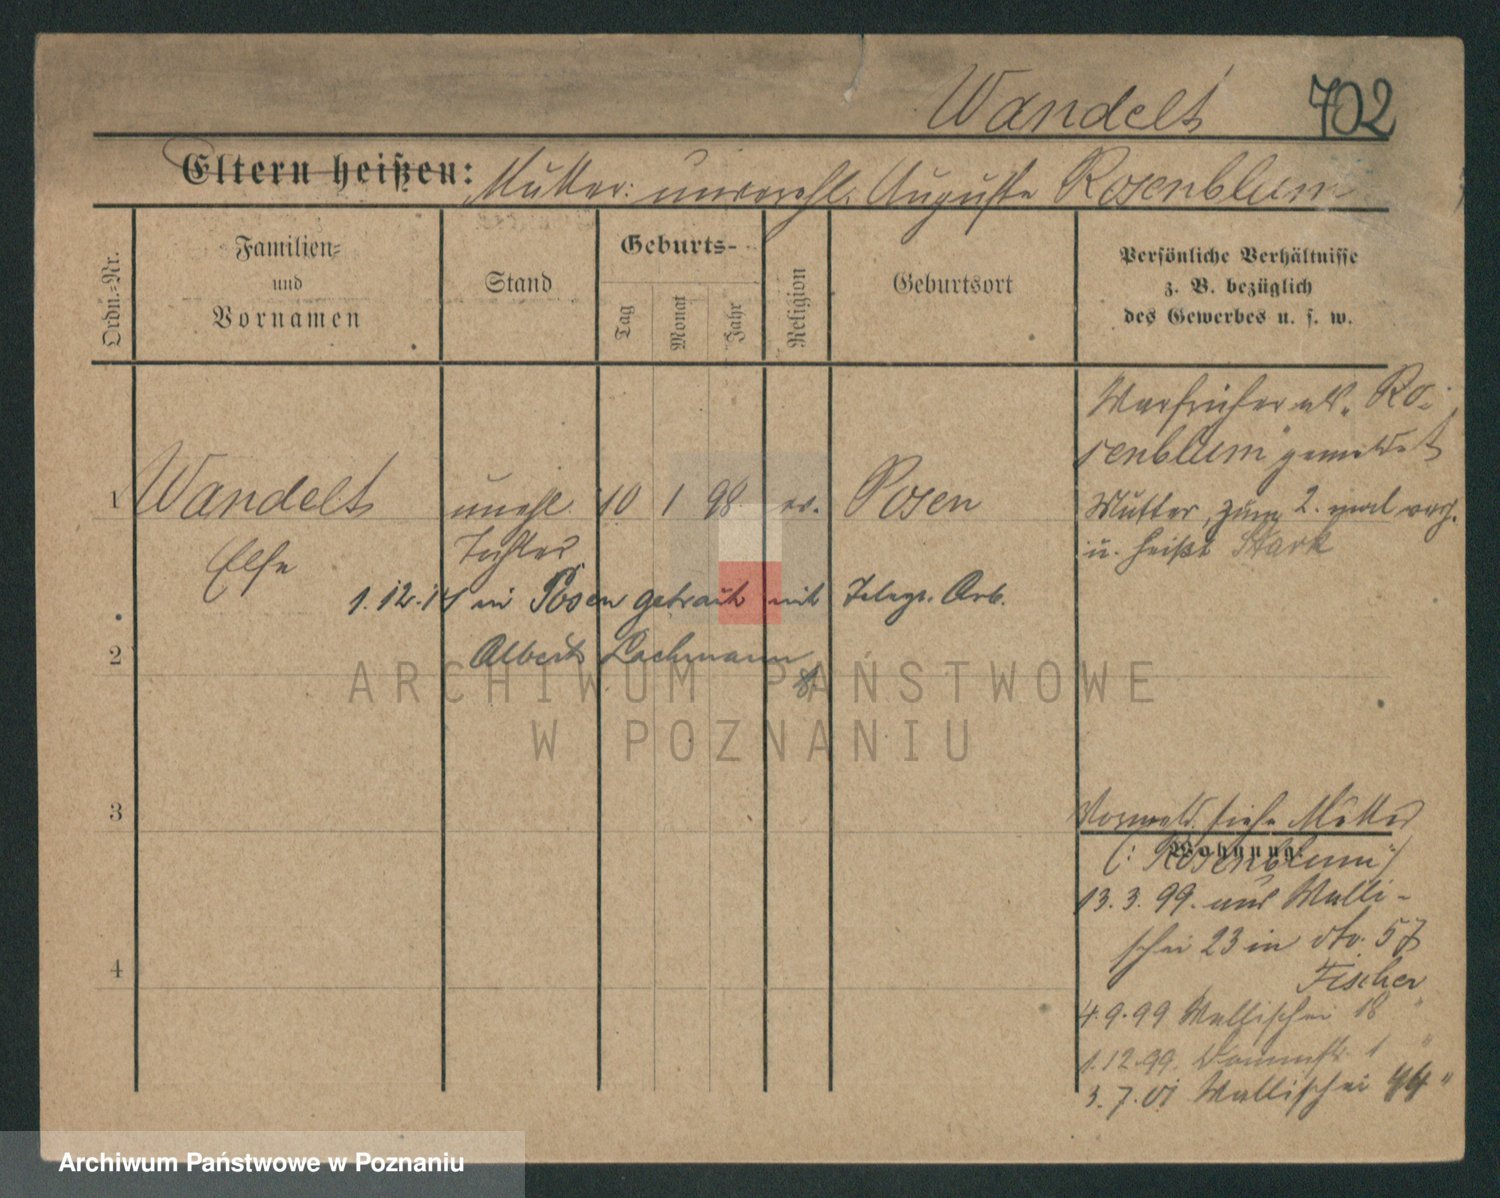 Wandelt 702
Eltern heißen: Mutter: unverehl. Auguste Rosenblum
Ordn.-Nr.
Familien-
und
Vornamen
Stand
Geburts-
Tag
Monat
Jahr
Religion
Geburtsort
Persönliche Verhältnisse
z. B. bezüglich
des Gewerbes u. s. w.
War früher als „Ro-
senblum" gemeldet
1 Wandelt unehl. 10 1 98 ev. Posen
Mutter zum 2. mal verh.
u. heißt Stark
Else Tochter
1.12.14 in Posen getraut mit Telegr. Arb.
2 Albert Lachmann
ARCHIWUM PAŃSTWOWE
W POZNANIU
3
Vormeld. siehe Mutter
Wohnung:
(: Rosenblum :)
13.3.99. aus Walli-
schei 23 in dto. 57
Fischer
4
4.9.99 Wallischei 18 "
1.12.99. Dommstr. 1 "
3.7.01 Wallischei 44 "
Archiwum Państwowe w Poznaniu